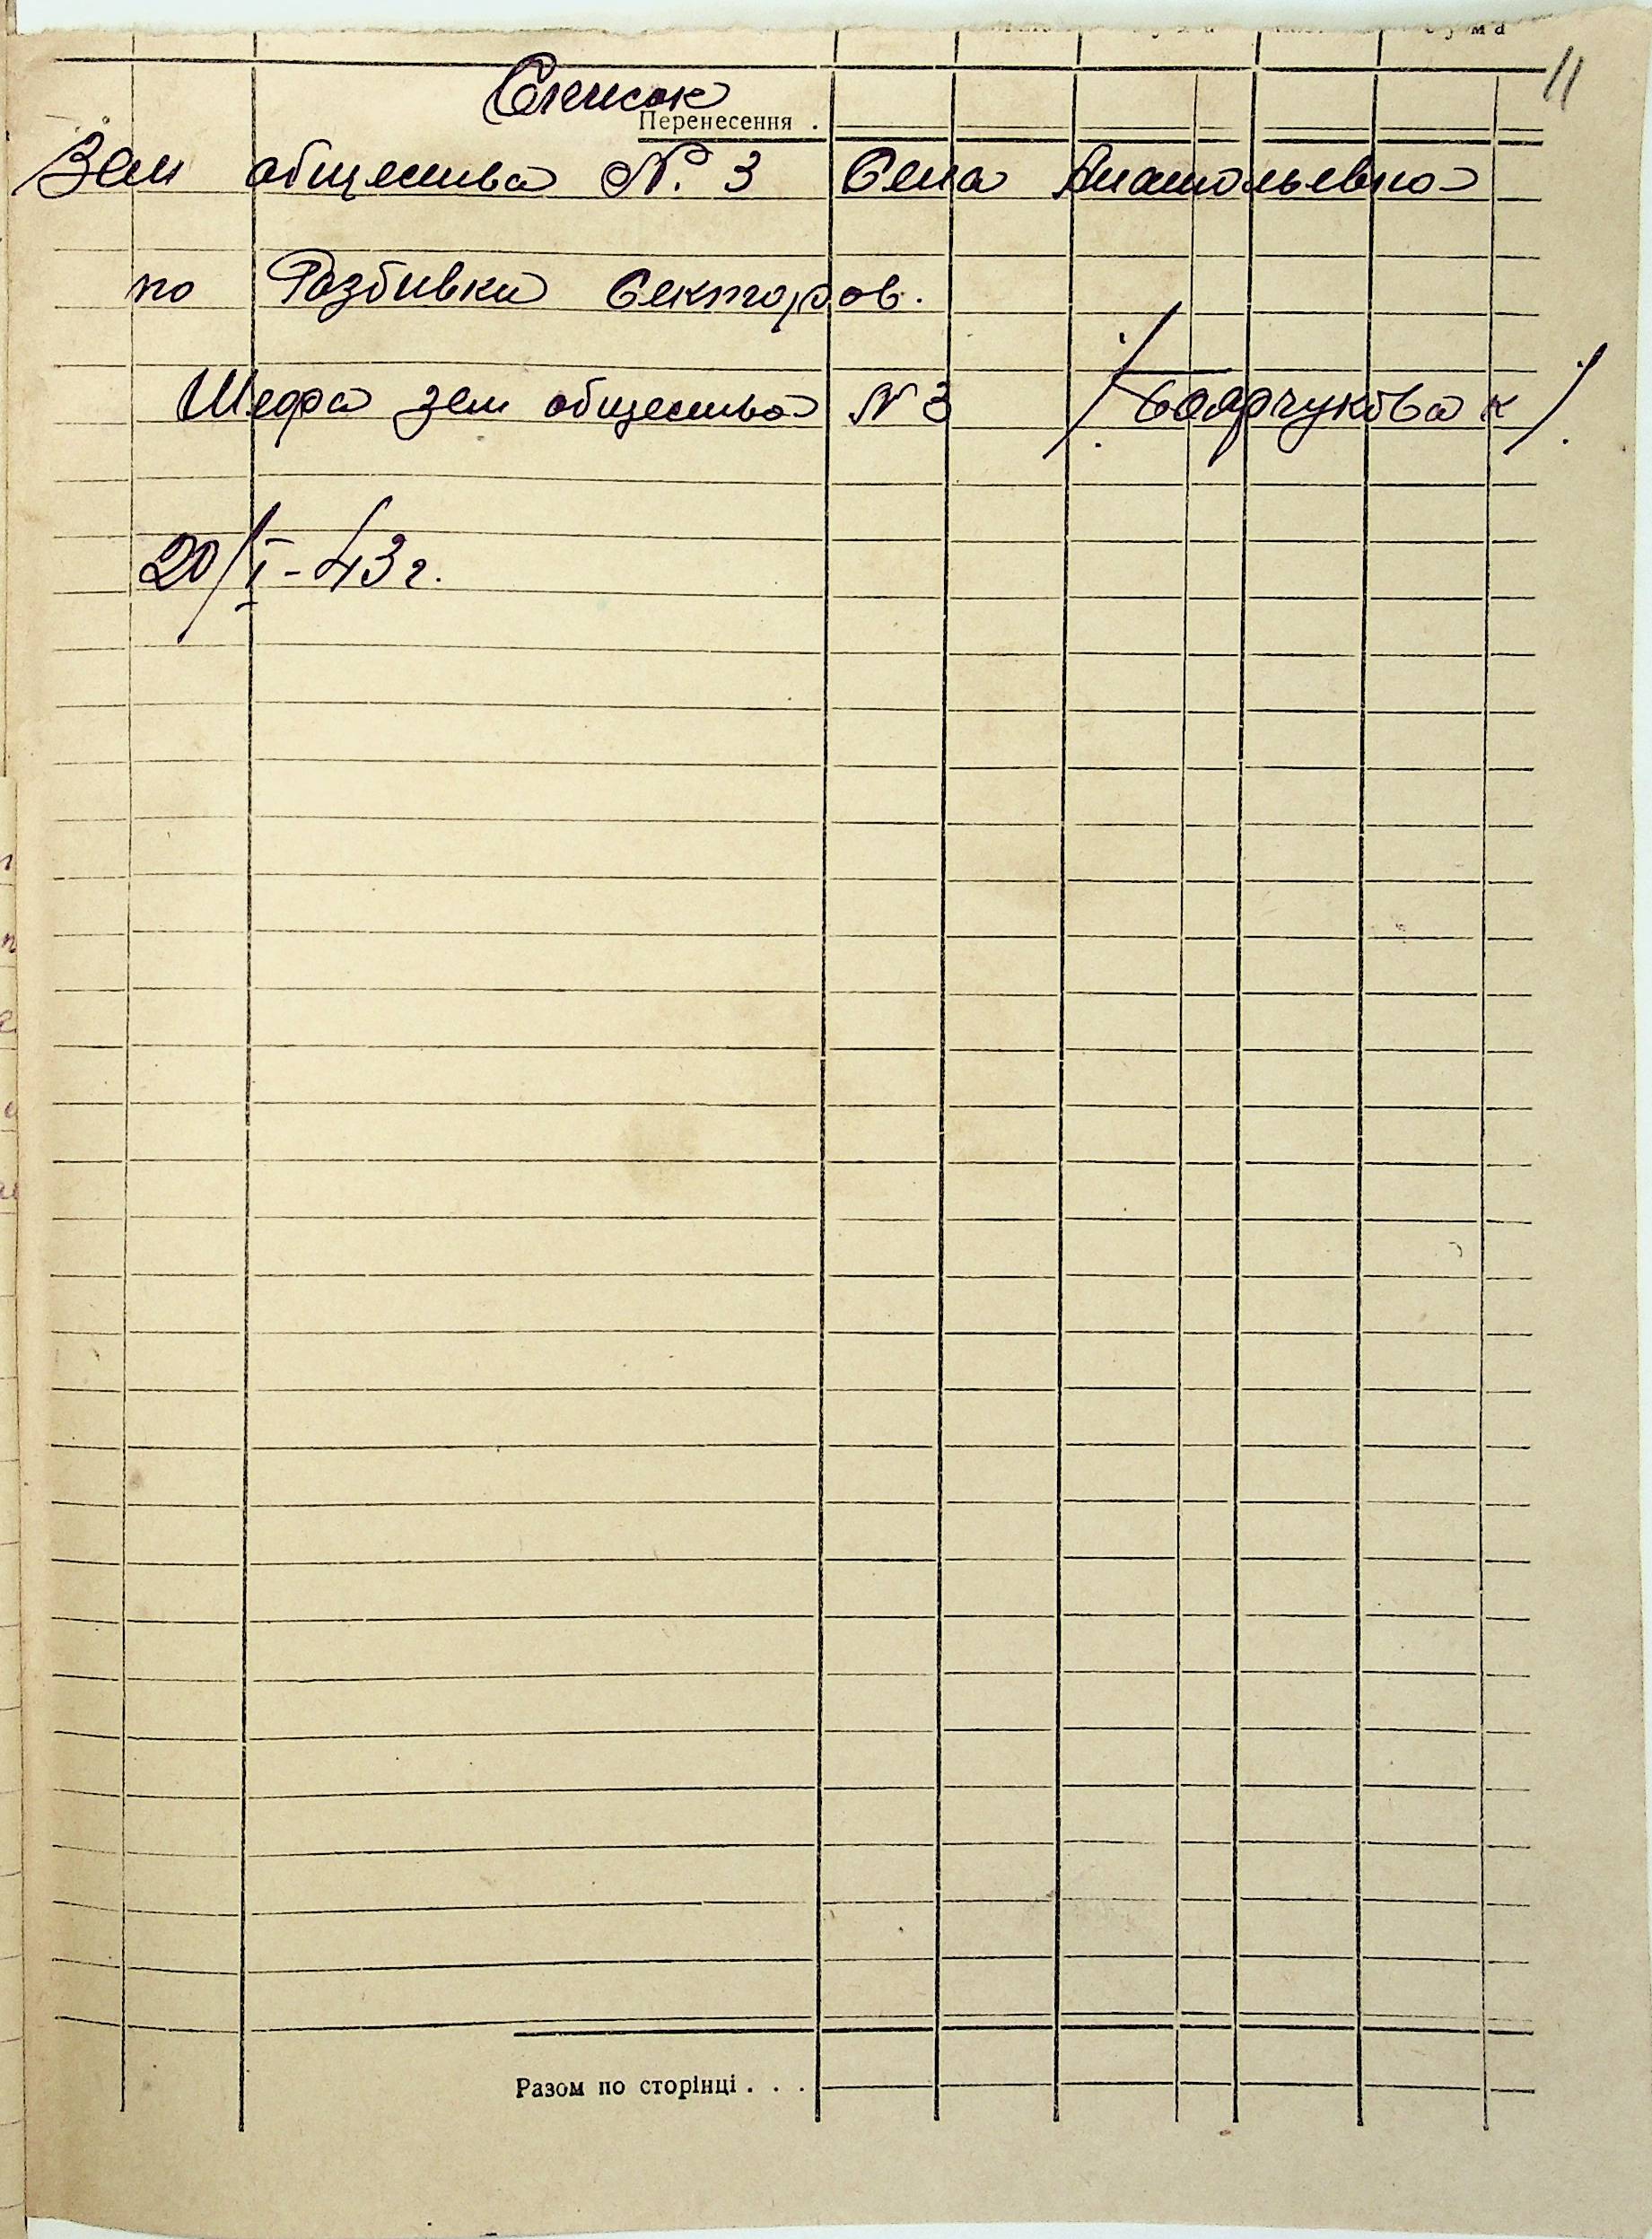 11
Список
Перенесення .
Зем общества №. 3 Села Анатольевка
по Разбивки Секторов.
Шефа зем общества № 3 /. Боярчукова к /.
20/I-43 г.
Разом по сторінці . . .